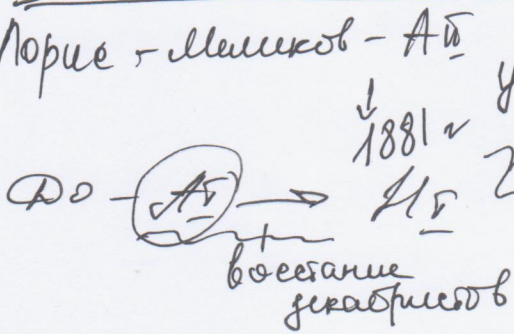 Лорис - Меликов - АII
1881 г
До - АI → НI
восстание
декабристов